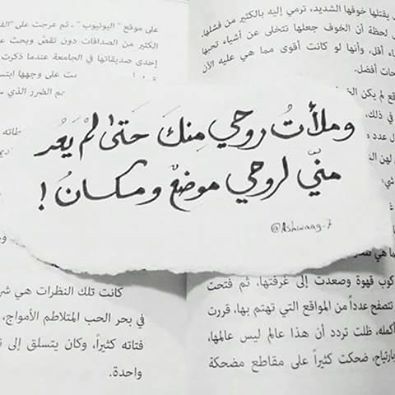 على موقع "اليوتيوب"، ثم عرجت على "الف
الكثير من الصداقات دون نقض وبحث ع
إحدى صديقاتها في الجامعة عندما ذكرت
ت على وجهها ابتس
م الضرر الذي
يقتلها خوفها الشديد، ترمي إليه بالكثير من فشلها،
لحظة أن الخوف جعلها تتخلى عن أشياء تحبها
أقل، وأنها لو كانت أقوى مما هي عليه الآن
حات أفضل.
وملأتُ روحي مِنكَ حَتىٰ لمْ يَعُد
منّي لروحي موضعٌ ومكانُ !
@Ashwaag_7
كانت تلك النظرات هي شر
في بحر الحب المتلاطم الأمواج،
فتاته كثيراً، وكان يتسلق إلى
واحدة.
كوب قهوة وصعدت إلى غرفتها، ثم فتحت
تتصفح عدداً من المواقع التي تهتم بها، قررت
أكمله، ظلت تردد أن هذا عالم ليس عالمها،
بارتياح، ضحكت كثيراً على مقاطع مضحكة